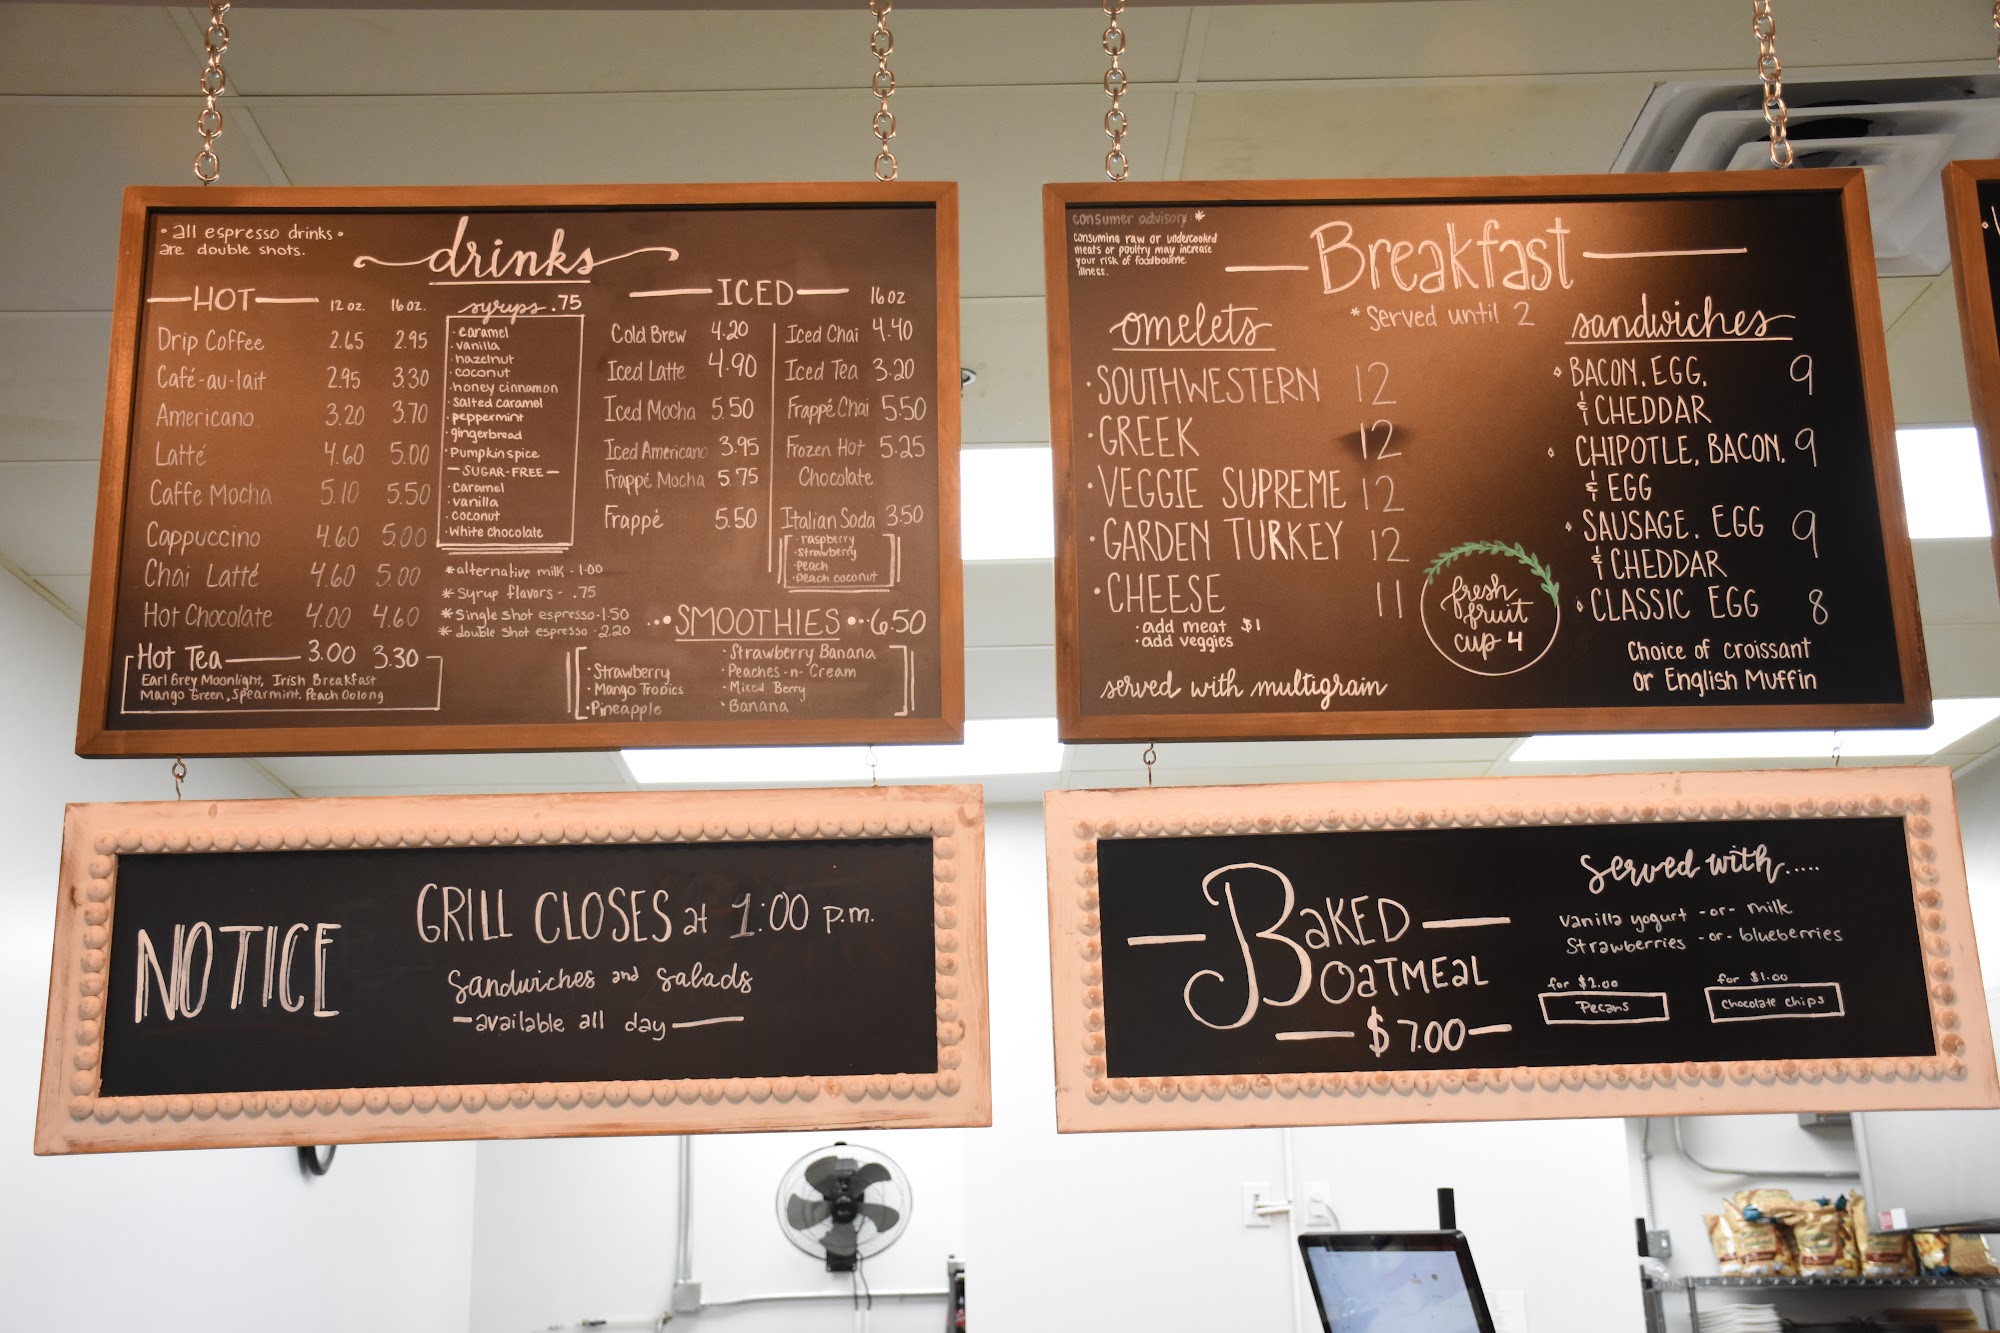 • all espresso drinks •
are double shots.
drinks
HOT 12 oz. 16 oz.
Drip Coffee 2.65 2.95
Café-au-lait 2.95 3.30
Americano 3.20 3.70
Latté 4.60 5.00
Caffe Mocha 5.10 5.50
Cappuccino 4.60 5.00
Chai Latté 4.60 5.00
Hot Chocolate 4.00 4.60
Hot Tea 3.00 3.30
Earl Grey Moonlight, Irish Breakfast
Mango Green, Spearmint, Peach Oolong
syrups .75
• caramel
• vanilla
• hazelnut
• coconut
• honey cinnamon
• salted caramel
• peppermint
• gingerbread
• Pumpkin spice
— SUGAR-FREE —
• Caramel
• vanilla
• coconut
• White chocolate
* alternative milk - 1.00
* Syrup flavors - .75
* Single shot espresso - 1.50
* double shot espresso - 2.20
ICED 16 oz
Cold Brew 4.20
Iced Latte 4.90
Iced Mocha 5.50
Iced Americano 3.95
Frappé Mocha 5.75
Frappé 5.50
Iced Chai 4.40
Iced Tea 3.20
Frappé Chai 5.50
Frozen Hot 5.25
Chocolate
Italian Soda 3.50
• raspberry
• strawberry
• peach
• peach coconut
••• SMOOTHIES ••• 6.50
• Strawberry
• Mango Tropics
• Pineapple
• Strawberry Banana
• Peaches-n-Cream
• Mixed Berry
• Banana
consumer advisory: *
Consuming raw or undercooked
meats or poultry may increase
your risk of foodbourne
illness.
Breakfast
* Served until 2
omelets
• SOUTHWESTERN 12
• GREEK 12
• VEGGIE SUPREME 12
• GARDEN TURKEY 12
• CHEESE 11
• add meat $1
• add veggies
served with multigrain
fresh
fruit
cup 4
sandwiches
BACON, EGG, 9
& CHEDDAR
CHIPOTLE, BACON, 9
& EGG
SAUSAGE, EGG 9
& CHEDDAR
CLASSIC EGG 8
Choice of croissant
or English Muffin
NOTICE
GRILL CLOSES at 1:00 p.m.
Sandwiches and Salads
— available all day —
BAKED
OATMEAL
$7.00
Served with.....
vanilla yogurt -or- milk
Strawberries -or- blueberries
for $2.00
Pecans
for $1.00
Chocolate chips